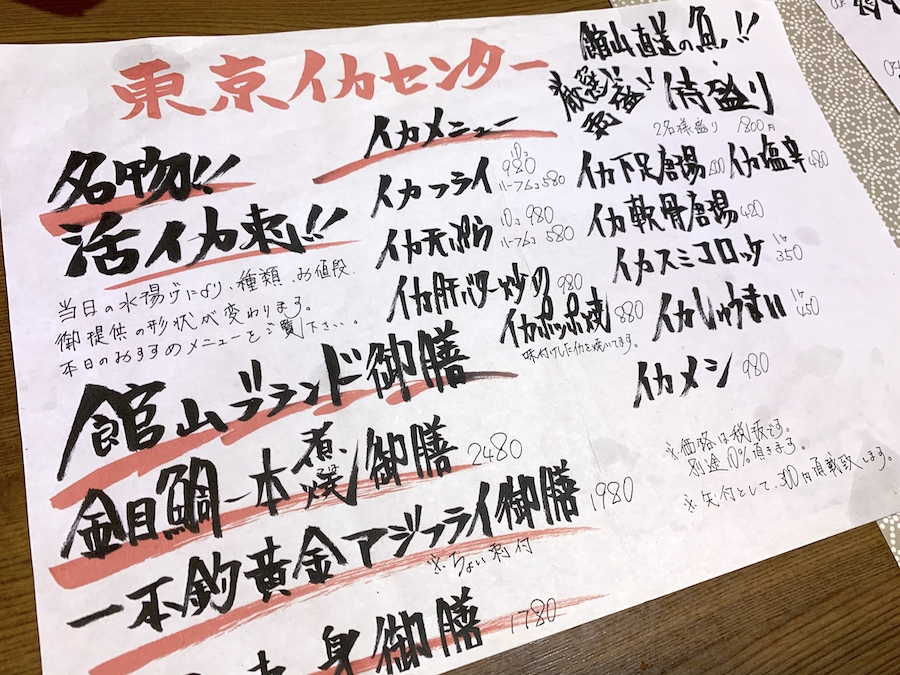 東京イカセンター
名物!!
活イカ刺!!
当日の水揚げにより、種類、お値段、
御提供の形状が変わります。
本日のおすすめメニューをご覧下さい。
イカメニュー
イカフライ 10コ 980
ハーフ5コ 580
イカ天ぷら 10コ 980
ハーフ5コ 580
イカ肝バター炒め 980
イカポッポ焼 880
味付けしたイカを焼いてます。
館山直送の魚!!
侍盛り
2名様盛り 1800円
イカ下足唐揚
イカ塩辛 480
イカ軟骨唐揚 420
イカスミコロッケ 1ケ 350
イカしゅうまい 1ケ 450
イカメシ 980
※価格は税抜です。
別途10%頂きます。
館山ブランド御膳
金目鯛一本煮/御膳 2480
一本釣黄金アジフライ御膳 1980
※ちょい刺付
身御膳 1780